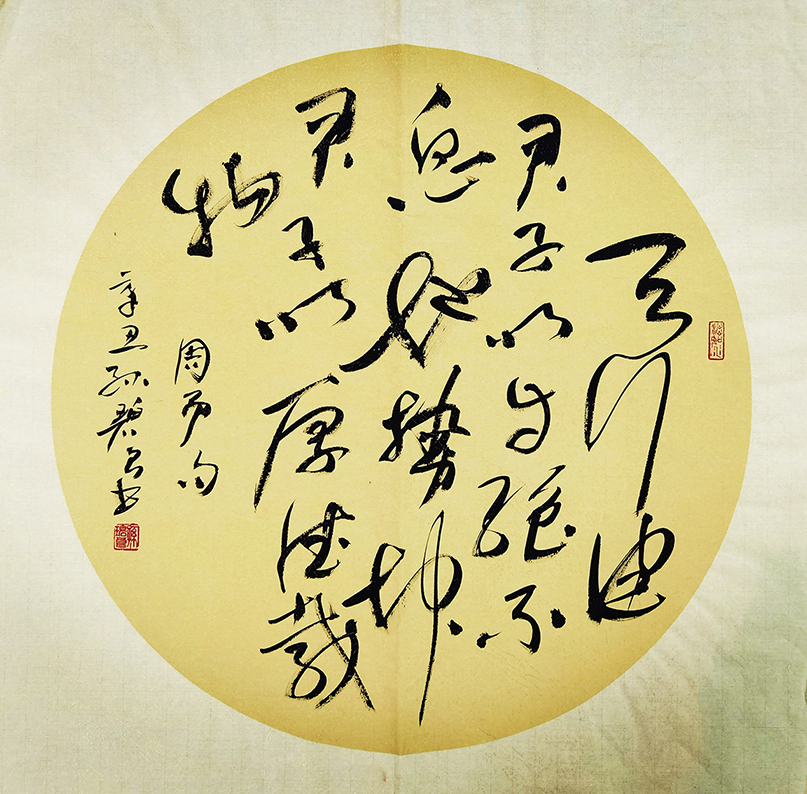 天行健
君子以自强不
息地勢坤
君子以厚德載
物
周易句
辛丑孫碧書